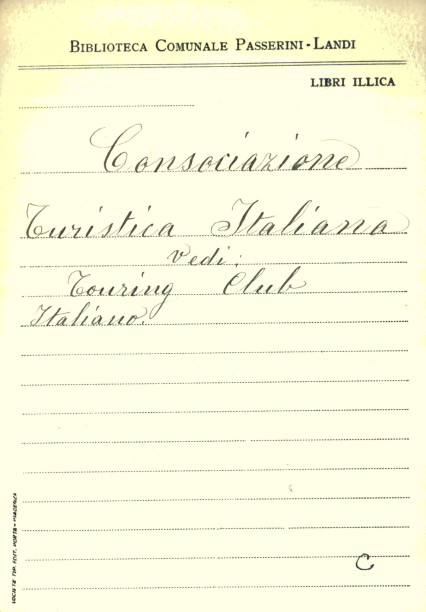 BIBLIOTECA COMUNALE PASSERINI-LANDI
LIBRI ILLICA
Consociazione
Turistica Italiana
vedi:
Touring Club
Italiano.
C